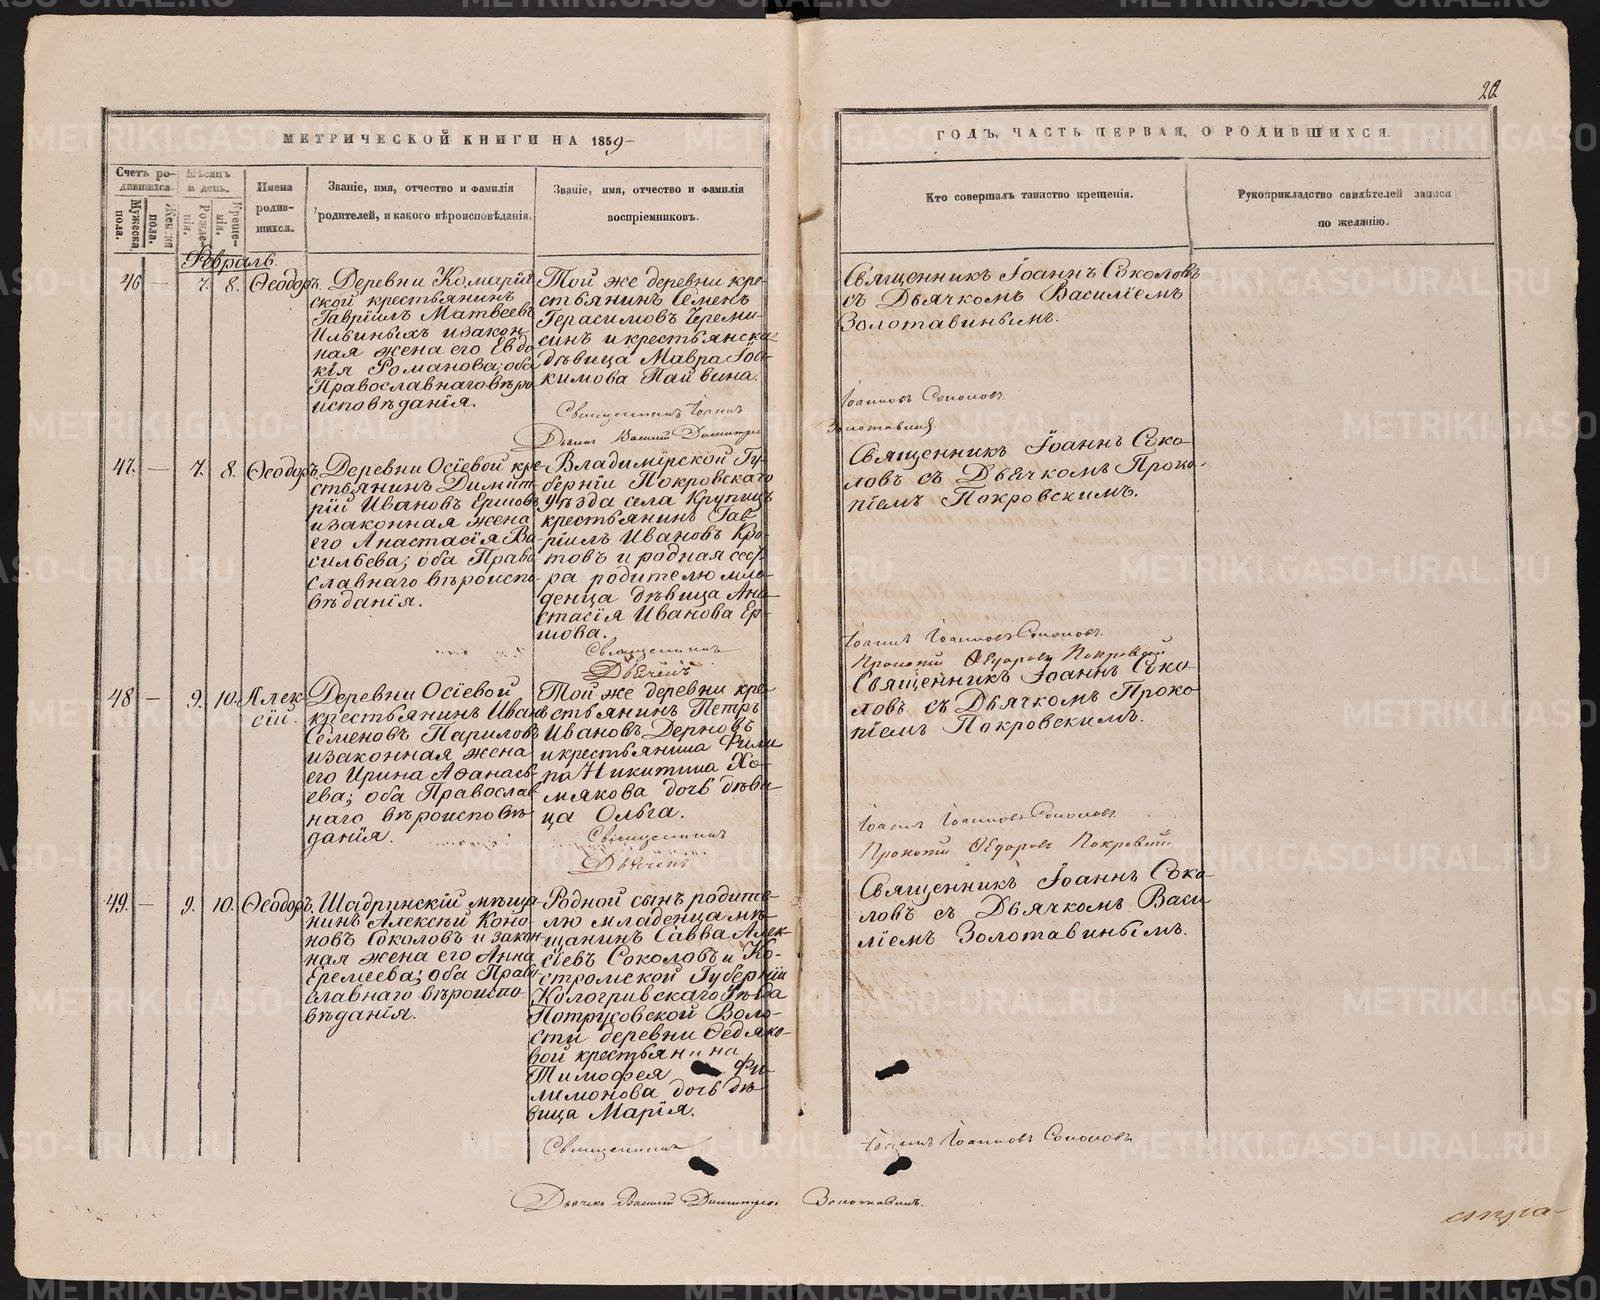 22
МЕТРИЧЕСКОЙ КНИГИ НА 1859
ГОДЪ, ЧАСТЬ ПЕРВАЯ, О РОДИВШИХСЯ.
Счетъ ро-
дившихся.
Мужеска
пола.
Женска
пола.
Мѣсяцъ
и день.
Рожде-
нія.
Креще-
нія.
Имена
родив-
шихся.
Званіе, имя, отчество и фамилія
родителей, и какого вѣроисповѣданія.
Званіе, имя, отчество и фамилія
воспріемниковъ.
Кто совершалъ таинство крещенія.
Рукоприкладство свидѣтелей записи
по желанію.
Февраль.
46 — 7. 8. Ѳеодоръ.
Деревни Комарій
ской крестьянинъ
Гавріилъ Матвеевъ
Ильиныхъ и закон
ная жена его Евдо
кія Романова; оба
Православнаго вѣро
исповѣданія.
Той же деревни кре
стьянинъ Семенъ
Герасимовъ Череми-
синъ и крестьянска
дѣвица Мавра Іоа
кимова Пайвина.
Священникъ Іоаннъ Соколовъ
съ Дьячкомъ Василіемъ
Золотавинымъ.
Священникъ Іоаннъ
Іоанновъ Соколовъ
Дьячекъ Василій Димитріевъ
Золотавинъ
47. — 7. 8. Ѳеодоръ.
Деревни Осіевой кре-
стьянинъ Димит-
рій Ивановъ Ершовъ
и законная жена
его Анастасія Ва-
сильева; оба Право-
славнаго вѣроиспо-
вѣданія.
Владимірской Гу-
берніи Покровскаго
уѣзда села Крупицъ
крестьянинъ Гав-
ріилъ Ивановъ Кро-
товъ и родная сест-
ра родителю мла-
денца дѣвица Ана-
стасія Иванова Ер-
шова.
Священникъ Іоаннъ Соко-
ловъ съ Дьячкомъ Проко-
піемъ Покровскимъ.
Священникъ
Іоаннъ Іоанновъ Соколовъ.
Дьячекъ
Прокопій Ѳедоровъ Покровскій
48 — 9. 10. Алек-
сій.
Деревни Осіевой
крестьянинъ Иванъ
Семеновъ Париловъ
и законная жена
его Ирина Аѳанась-
ева; оба Православ
наго вѣроисповѣ-
данія.
Той же деревни кре-
стьянинъ Петръ
Ивановъ Дерновъ
и крестьянина Фили
па Никитина Хо-
мякова дочь дѣви
ца Ольга.
Священникъ Іоаннъ Соко-
ловъ съ Дьячкомъ Проко-
піемъ Покровскимъ.
Священникъ
Іоаннъ Іоанновъ Соколовъ.
Дьячекъ
Прокопій Ѳедоровъ Покровскій
49. — 9. 10. Ѳеодоръ.
Шадринскій мѣща
нинъ Алексѣй Коно-
новъ Соколовъ и закон-
ная жена его Анна
Еремеева; оба Право
славнаго вѣроиспо-
вѣданія.
Родной сынъ родите-
лю младенца мѣ-
щанинъ Савва Алек-
сіевъ Соколовъ и Ко-
стромской Губерніи
Кологривскаго Уѣзда
Потрусовской Воло-
сти деревни Федяко-
вой крестьянина
Тимофея Фи-
лимонова дочь дѣ-
вица Марія.
Священникъ Іоаннъ Соко-
ловъ съ Дьячкомъ Васи-
ліемъ Золотавинымъ.
Священникъ
Іоаннъ Іоанновъ Соколовъ.
Дьячекъ Василій Димитріевъ Золотавинъ.
METRIKI.GASO-URAL.RU